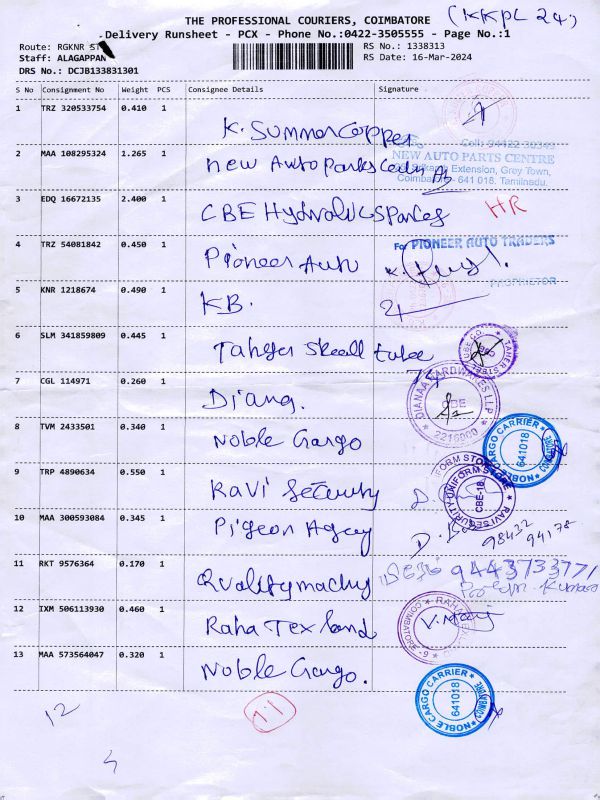 THE PROFESSIONAL COURIERS, COIMBATORE (KKPL 24)
Delivery Runsheet - PCX - Phone No.:0422-3505555 - Page No.:1
Route: RGKNR ST
RS No.: 1338313
Staff: ALAGAPPAN
RS Date: 16-Mar-2024
DRS No.: DCJB133831301
S No Consignment No Weight PCS Consignee Details Signature
1 TRZ 320533754 0.410 1
K. Summer Copper
2 MAA 108295324 1.265 1
New Auto Parks Cently
Cell: 94422 39349
NEW AUTO PARTS CENTRE
Extension, Grey Town,
Coimbatore - 641 018. Tamilnadu.
3 EDQ 16672135 2.400 1
CBE Hydrolic Spares HR
4 TRZ 54081842 0.450 1
Pioneer Auto
For PIONEER AUTO TRADERS
PROPRIETOR
5 KNR 1218674 0.490 1
KB.
6 SLM 341859809 0.445 1
Taher Steall tube
7 CGL 114971 0.260 1
Diana.
DIANAA HARDWARES LLP
CBE
2216900
8 TVM 2433501 0.340 1
Noble Cargo
NOBLE CARGO CARRIER
641018
COIMBATORE
9 TRP 4890634 0.550 1
Ravi Security
RAVI SECURITY UNIFORM STORE
CBE-18
10 MAA 300593084 0.345 1
Pigeon Agency
98432
94178
11 RKT 9576364 0.170 1
Quality machy
9443733771
12 IXM 506113930 0.460 1
Raha Tex land
RAHA
COIMBATORE - 9
V. Maij
13 MAA 573564047 0.320 1
Noble Cargo.
NOBLE CARGO CARRIER
641018
COIMBATORE
12
11